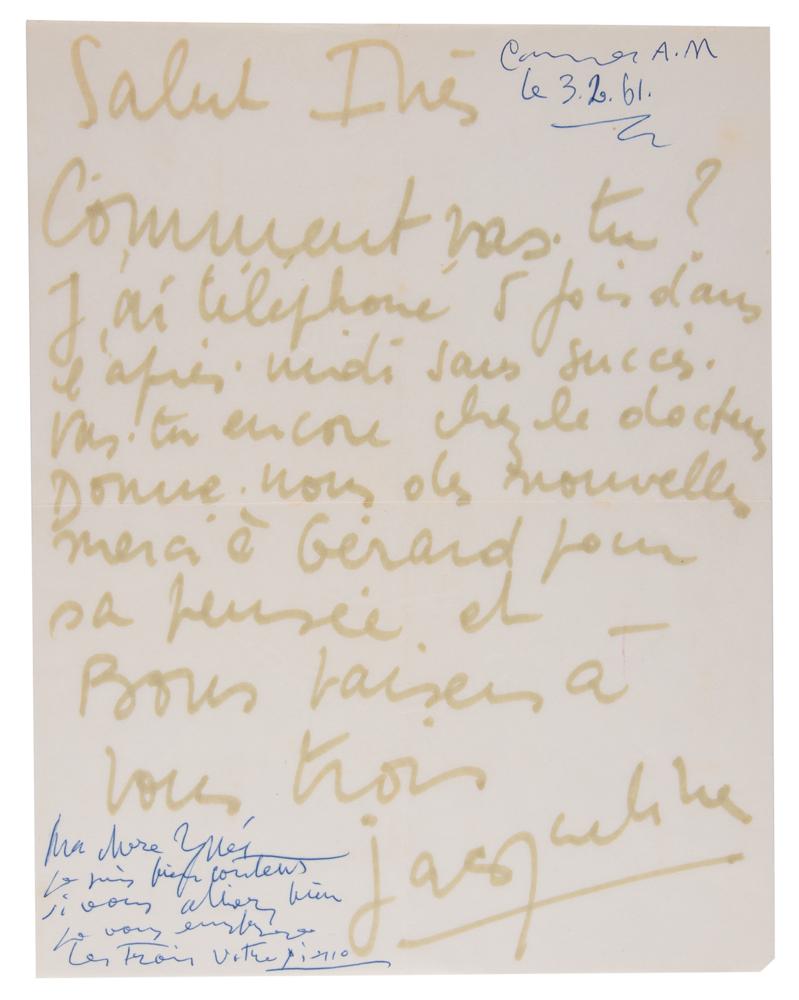 Cannes A.M
le 3.2.61.
Salut Inès
Comment vas-tu ?
J'ai téléphoné 5 fois dans
l'après-midi sans succès.
Vas-tu encore chez le docteur
Donne-nous des nouvelles
merci à Gérard pour
sa pensée et
Bons baisers à
vous trois
Jacqueline
Ma chere Ynés
je suis bien contens
si vous alliez bien
je vous embrasse
les Trois votre